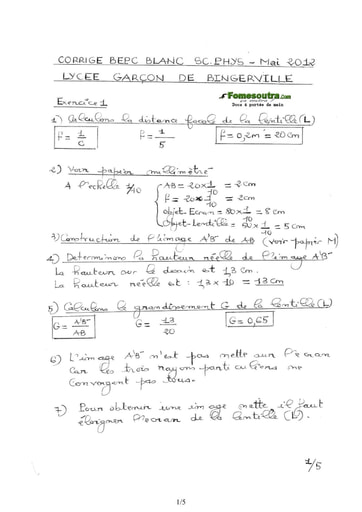 CORRIGE BEPC BLANC SC.PHYS - Mai 2012
LYCEE GARÇON DE BINGERVILLE
Fomesoutra.com
Docs à portée de main
Exercice 1
1) Calculons la distance focale de la lentille (L)
f = 1/C f = 1/5 f = 0,2m = 20cm
2) Voir papier millimètré
A l'échelle 1/10 AB = 20 x 1/10 = 2cm
f = 20 x 1/10 = 2cm
objet-Ecran = 80 x 1/10 = 8cm
Objet-lentille = 50 x 1/10 = 5cm
3) Construction de l'image A'B' de AB (voir papier M)
4) Determinons la hauteur réelle de l'image A'B'
La hauteur sur le dessin est 1,3 cm.
La hauteur réelle est : 1,3 x 10 = 13cm
5) Calculons le grandissement G de la lentille (L)
G = A'B'/AB G = 13/20 G = 0,65
6) L'image A'B' n'est pas nette sur l'écran
car les trois rayons particuliers ne
convergent pas tous.
7) Pour obtenir une image nette il faut
éloigner l'écran de la lentille (L).
1/5
1/5